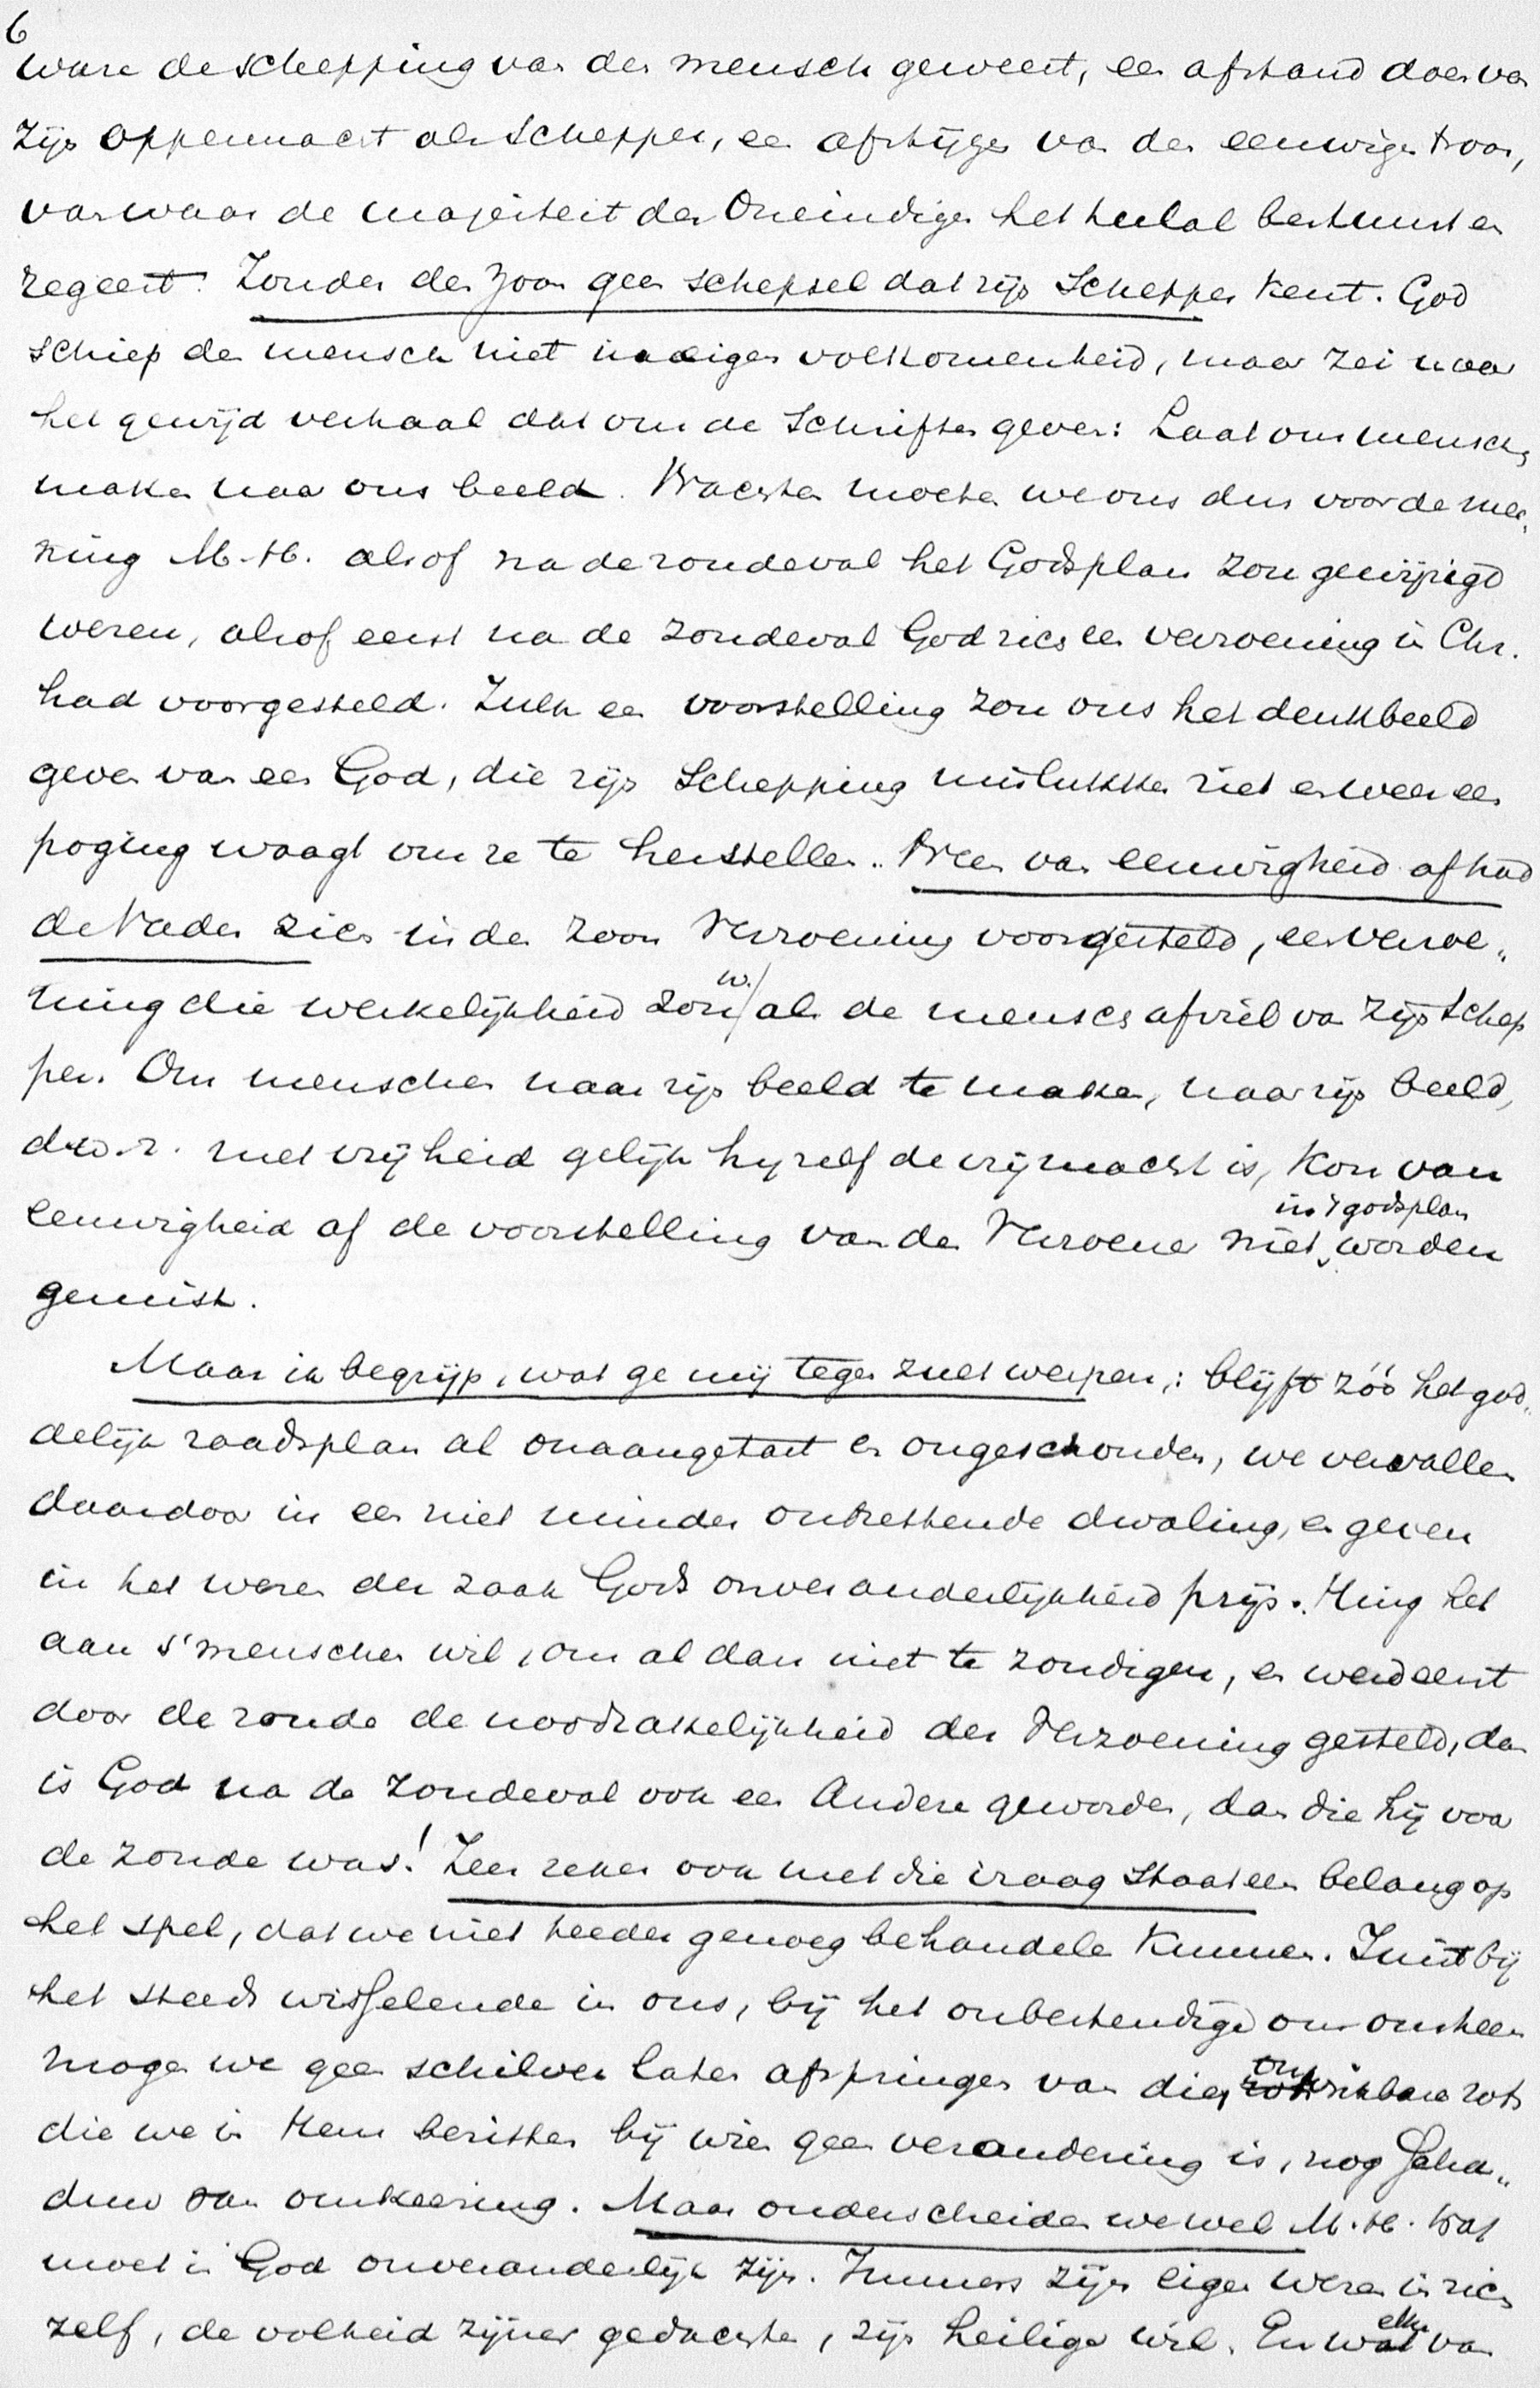 6
ware de schepping van den mensch geweest, een afstand doen van
zijn oppermacht als Schepper, een afstijgen van den eeuwigen troon,
van waar de majesteit des Oneindigen het heelal bestuurt en
regeert. Zonder den Zoon geen schepsel dat zijn Schepper kent. God
schiep den mensch niet in eigen volkomenheid, maar zei naar
het gewijd verhaal dat ons de Schriften geven: Laat ons menschen
maken naar ons beeld. Wachten moeten we ons dus voor de mee„
ning M.H. alsof na de zondeval het Godsplan zou gewijzigd
wezen, alsof eerst na de zondeval God zich een verzoening in Chr.
had voorgesteld. Zulk een voorstelling zou ons het denkbeeld
geven van een God, die zijn Schepping mislukken ziet en weer een
poging waagt om ze te herstellen. Neen van eeuwigheid af had
de Vader zich in den Zoon Verzoening voorgesteld, een verzoe„
ning die werkelijkheid zou w./ als de mensch afviel van zijn Schep
per. Om menschen naar zijn beeld te maken, naar zijn beeld,
d.w.z. met vrijheid gelijk hij zelf de vrijmacht is, kon van
eeuwigheid af de voorstelling van den Verzoener niet in 't godsplan worden
gemist.
Maar ik begrijp, wat ge mij tegen zult werpen,: blijft zóó het god„
delijk raadsplan al onaangetast en ongeschonden, we vervallen
daardoor in een niet minder ontzettende dwaling, en geven
in het wezen der zaak Gods onveranderlijkheid prijs. Hing het
aan s'menschen wil, om al dan niet te zondigen, en werd eerst
door de zonde de noodzakelijkheid der Verzoening gesteld, dan
is God na de zondeval ook een Andere geworden, dan die hij voor
de zonde was! Zeer zeker ook met die vraag staat een belang op
het spel, dat we niet teeder genoeg behandelen kunnen. Juist bij
het steeds wisselende in ons, bij het onbestendige om ons heen
mogen we geen schilver laten afspringen van die onwrikbare rots
die we in Hem bezitten bij wien geen verandering is, nog scha„
duw van omkeering. Maar onderscheiden we wel M.H. Wat
moet in God onveranderlijk zijn. Immers zijn eigen wezen in zich
zelf, de volheid zijner gedachten, zijn heilige wil. En elke van